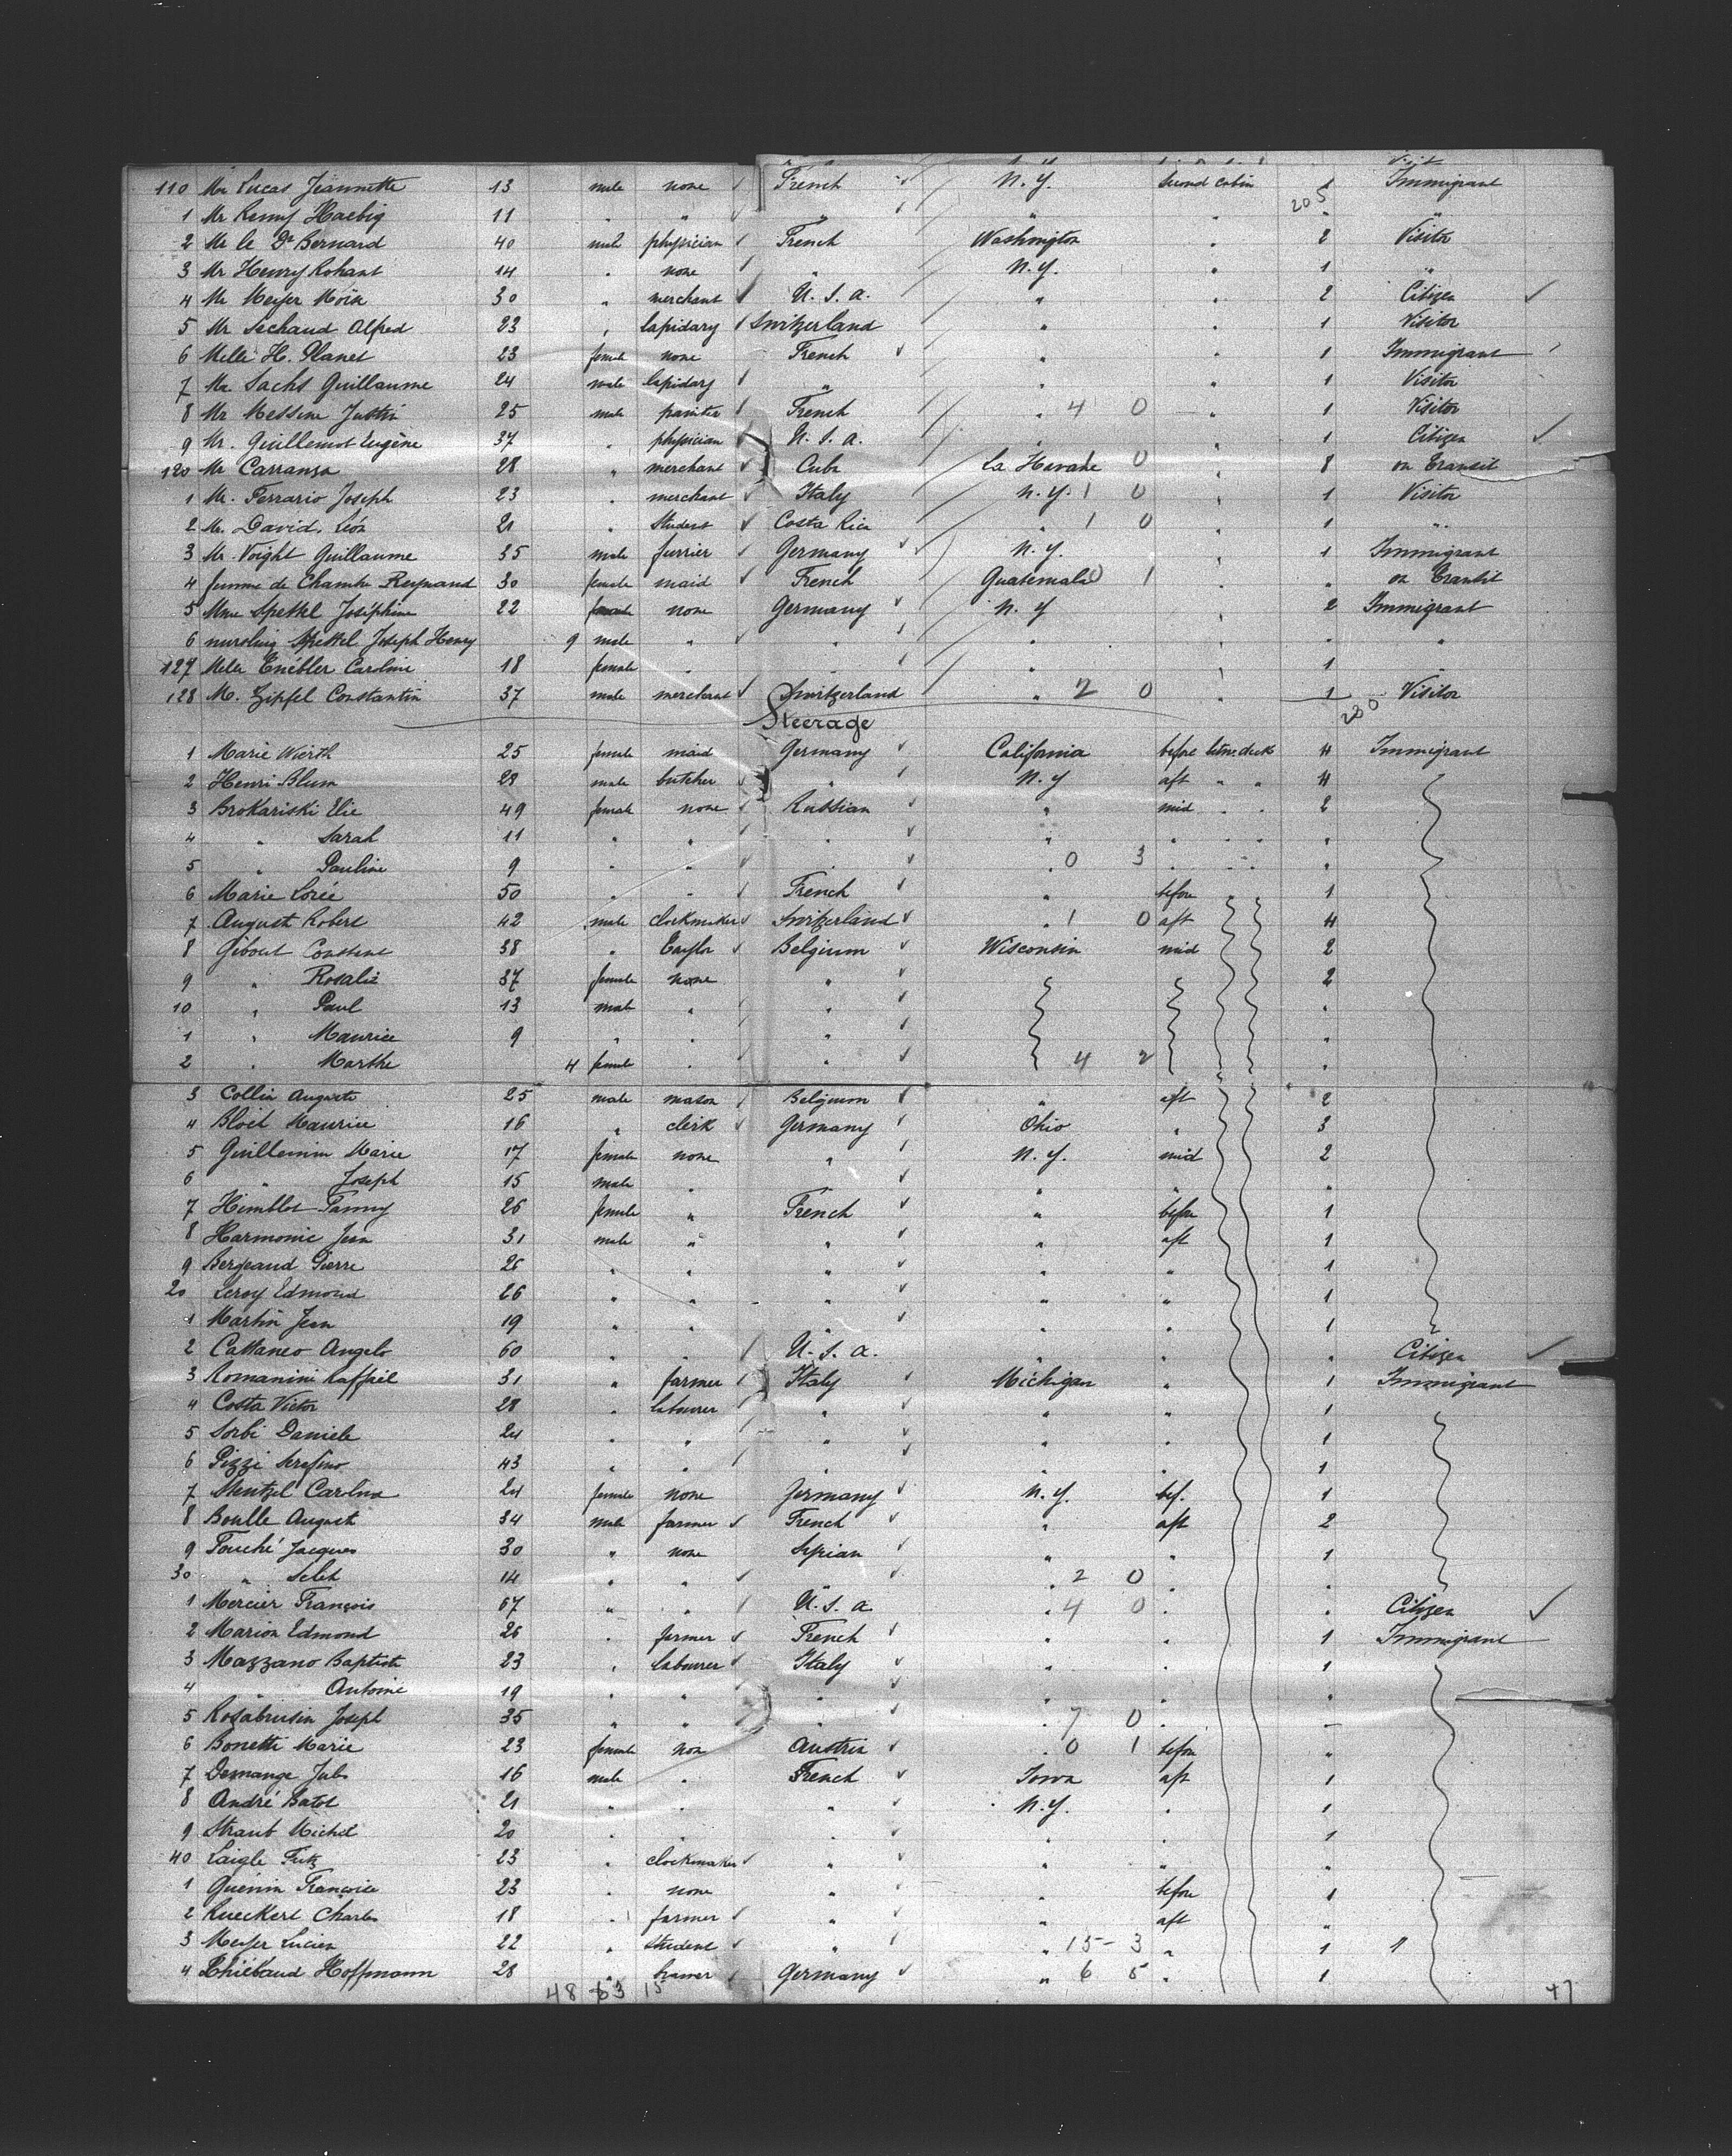 110 Mr Lucas Jeannette 13 male none French N.Y. Second Cabin 1 Immigrant
205
1 Mr Remy Haebig 11 " " " " " " "
2 Mr le Dr Bernard 40 male physician French Washington " 2 Visitor
3 Mr Henry Rohant 14 " none " N.Y. " 1 "
4 Mr Meyer Moïse 30 " merchant U.S.a. " " 2 Citizen
5 Mr Sechaud Alfred 23 " lapidary Switzerland " " 1 Visitor
6 Melle H. Planet 23 female none French " " 1 Immigrant
7 Mr Sachs Guillaume 24 male lapidary " " " 1 Visitor
8 Mr Messine Justin 25 male French " 4 0 " 1 Visitor
9 Mr. Guillemot Eugène 37 " physician U.S.a. " " 1 Citizen
120 Mr Carranza 28 " merchant Cuba la Havane 0 " 8 on Transit
1 Mr. Ferrario Joseph 23 " merchant Italy N.Y. 1 0 " 1 Visitor
2 Mr. David, Léon 21 " Student Costa Rica " 1 0 " 1 "
3 Mr. Voight Guillaume 35 male furrier Germany N.Y. " 1 Immigrant
4 femme de Chambre Reynaud 30 female maid French Guatemala 0 1 " " on Transit
5 Mme Spettel Joséphine 22 female none Germany N.Y " 2 Immigrant
6 nursling Spettel Joseph Henry 9 male " " " " " "
127 Melle Enebler Caroline 18 female " " " " 1 "
128 M. Zipfel Constantin 37 male merchant Switzerland " 2 0 " 1 Visitor
230
Steerage
1 Marie Wierth 25 female maid Germany California before betw. deck 4 Immigrant
2 Henri Blum 28 male butcher " N.Y aft " " 4
3 Brokariski Elie 49 female none Russian " mid " " 2
4 " Sarah 11 " " " " " " " "
5 " Pauline 9 " " " " 0 3 " " " "
6 Marie Lorée 50 " " French " before " " 1
7 August Robert 42 male clockmaker Switzerland " 1 0 aft 4
8 Gibout Constant 38 " Taylor Belgium Wisconsin mid 2
9 " Rosalie 37 female none " 2
10 " Paul 13 male " " "
1 " Maurice 9 " " " "
2 " Marthe 4 female " " 4 2 "
3 Collin Auguste 25 male mason Belgium " aft 2
4 Bloët Maurice 16 " clerk Germany Ohio " 3
5 Guillemin Marie 17 female none " N.Y. mid 2
6 " Joseph 15 male " " " " "
7 Himblot Fanny 26 female " French " before 1
8 Harmonie Jean 31 male " " " aft 1
9 Bergeaud Pierre 26 " " " " " 1
20 Leroy Edmond 26 " " " " " 1
1 Martin Jean 19 " " " " " 1
2 Cattaneo Angelo 60 " " U.S.a. " " " Citizen
3 Romanini Raffaël 31 " farmer Italy Michigan " 1 Immigrant
4 Costa Victor 28 " labourer " " " 1
5 Sorbi Daniele 24 " " " " " 1
6 Pizzi Serafino 43 " " " " " 1
7 Mentzel Carolina 24 female none Germany N.Y. bef. 1
8 Boulle August 34 male farmer French " aft 2
9 Touché Jacques 30 " none Syrian " " 1
30 " Seleh 14 " " " " 2 0 " "
1 Mercier François 67 " " U.S.a " 4 0 " " Citizen
2 Marion Edmond 26 " farmer French " " 1 Immigrant
3 Mazzano Baptiste 23 " labourer Italy " " 1
4 " Antoine 19 " " " " " "
5 Joseph 35 " " " " 7 0 " "
6 Bonetti Marie 23 female non Austria " 0 1 before "
7 Demange Jules 16 male " French Iowa aft 1
8 André Batot 21 " " " N.Y. " 1
9 Straub Michel 20 " " " " " 1
40 Laigle Fritz 23 " clockmaker " " " "
1 Guenin Françoise 23 " none " " before 1
2 Rueckert Charles 18 " farmer " " aft "
3 Meyer Lucien 22 " student " " 15 - 3 " 1
4 Thiébaud Hoffmann 28 " Germany " 6 5 " 1
48 63 15
47